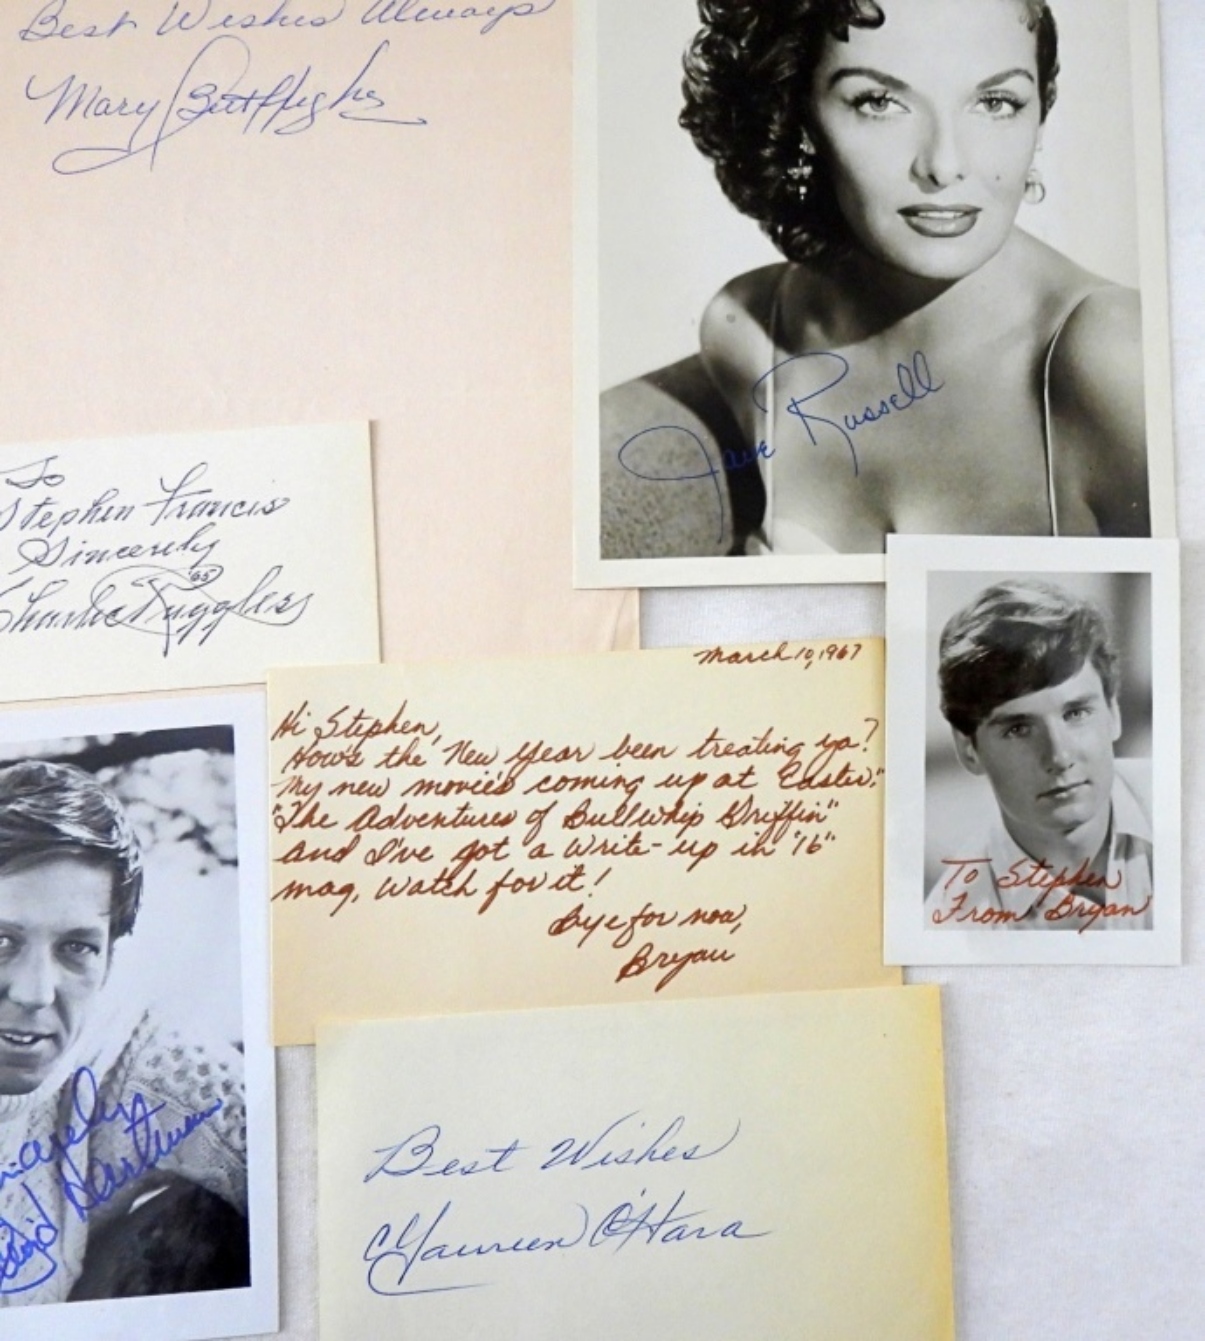 Best Wishes Always
Mary
Jane Russell
To
Stephen Francis
Sincerely
'65
Charlie Ruggles
March 10, 1967
Hi Stephen,
How's the New Year been treating ya?
My new movie's coming up at Easter:
"The Adventures of Bullwhip Griffin"
and I've got a write-up in "16"
mag, watch for it!
Bye for now,
Bryan
To Stephen
From Bryan
Hartman
Best Wishes
Maureen O'Hara